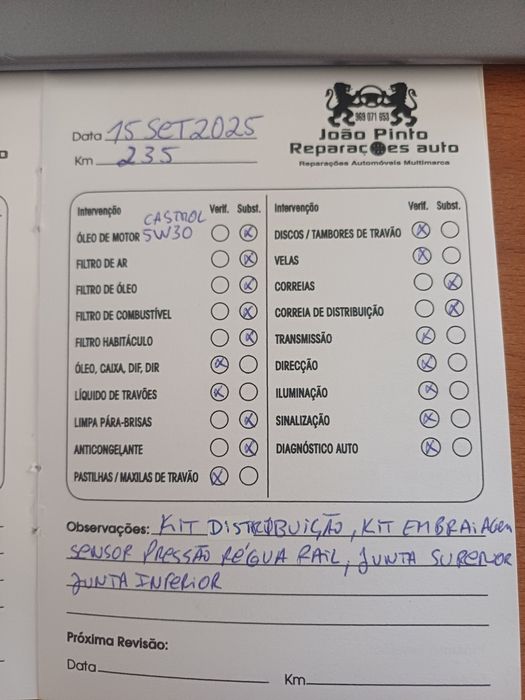 969 071 653
João Pinto
Reparações auto
Reparações Automóveis Multimarca
Data 15 SET 2025
Km 235
Intervenção Verif. Subst.
CASTROL
ÓLEO DE MOTOR 5W30
FILTRO DE AR
FILTRO DE ÓLEO
FILTRO DE COMBUSTÍVEL
FILTRO HABITÁCULO
ÓLEO, CAIXA, DIF, DIR
LÍQUIDO DE TRAVÕES
LIMPA PÁRA-BRISAS
ANTICONGELANTE
PASTILHAS / MAXILAS DE TRAVÃO
Intervenção Verif. Subst.
DISCOS / TAMBORES DE TRAVÃO
VELAS
CORREIAS
CORREIA DE DISTRIBUIÇÃO
TRANSMISSÃO
DIRECÇÃO
ILUMINAÇÃO
SINALIZAÇÃO
DIAGNÓSTICO AUTO
Observações: KIT DISTRIBUIÇÃO, KIT EMBRAIAGEM
SENSOR PRESSÃO RÉGUA RAIL, JUNTA SUPERIOR
JUNTA INFERIOR
Próxima Revisão:
Data Km